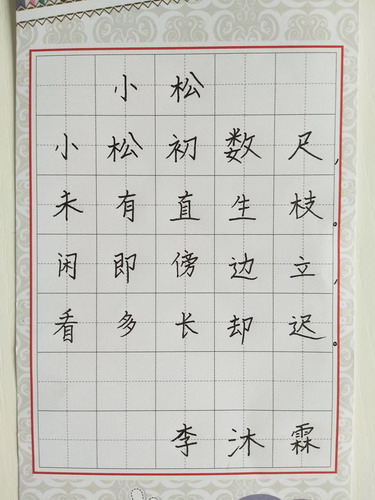 小松
小松初数尺,
未有直生枝。
闲即傍边立,
看多长却迟。
李沐霖